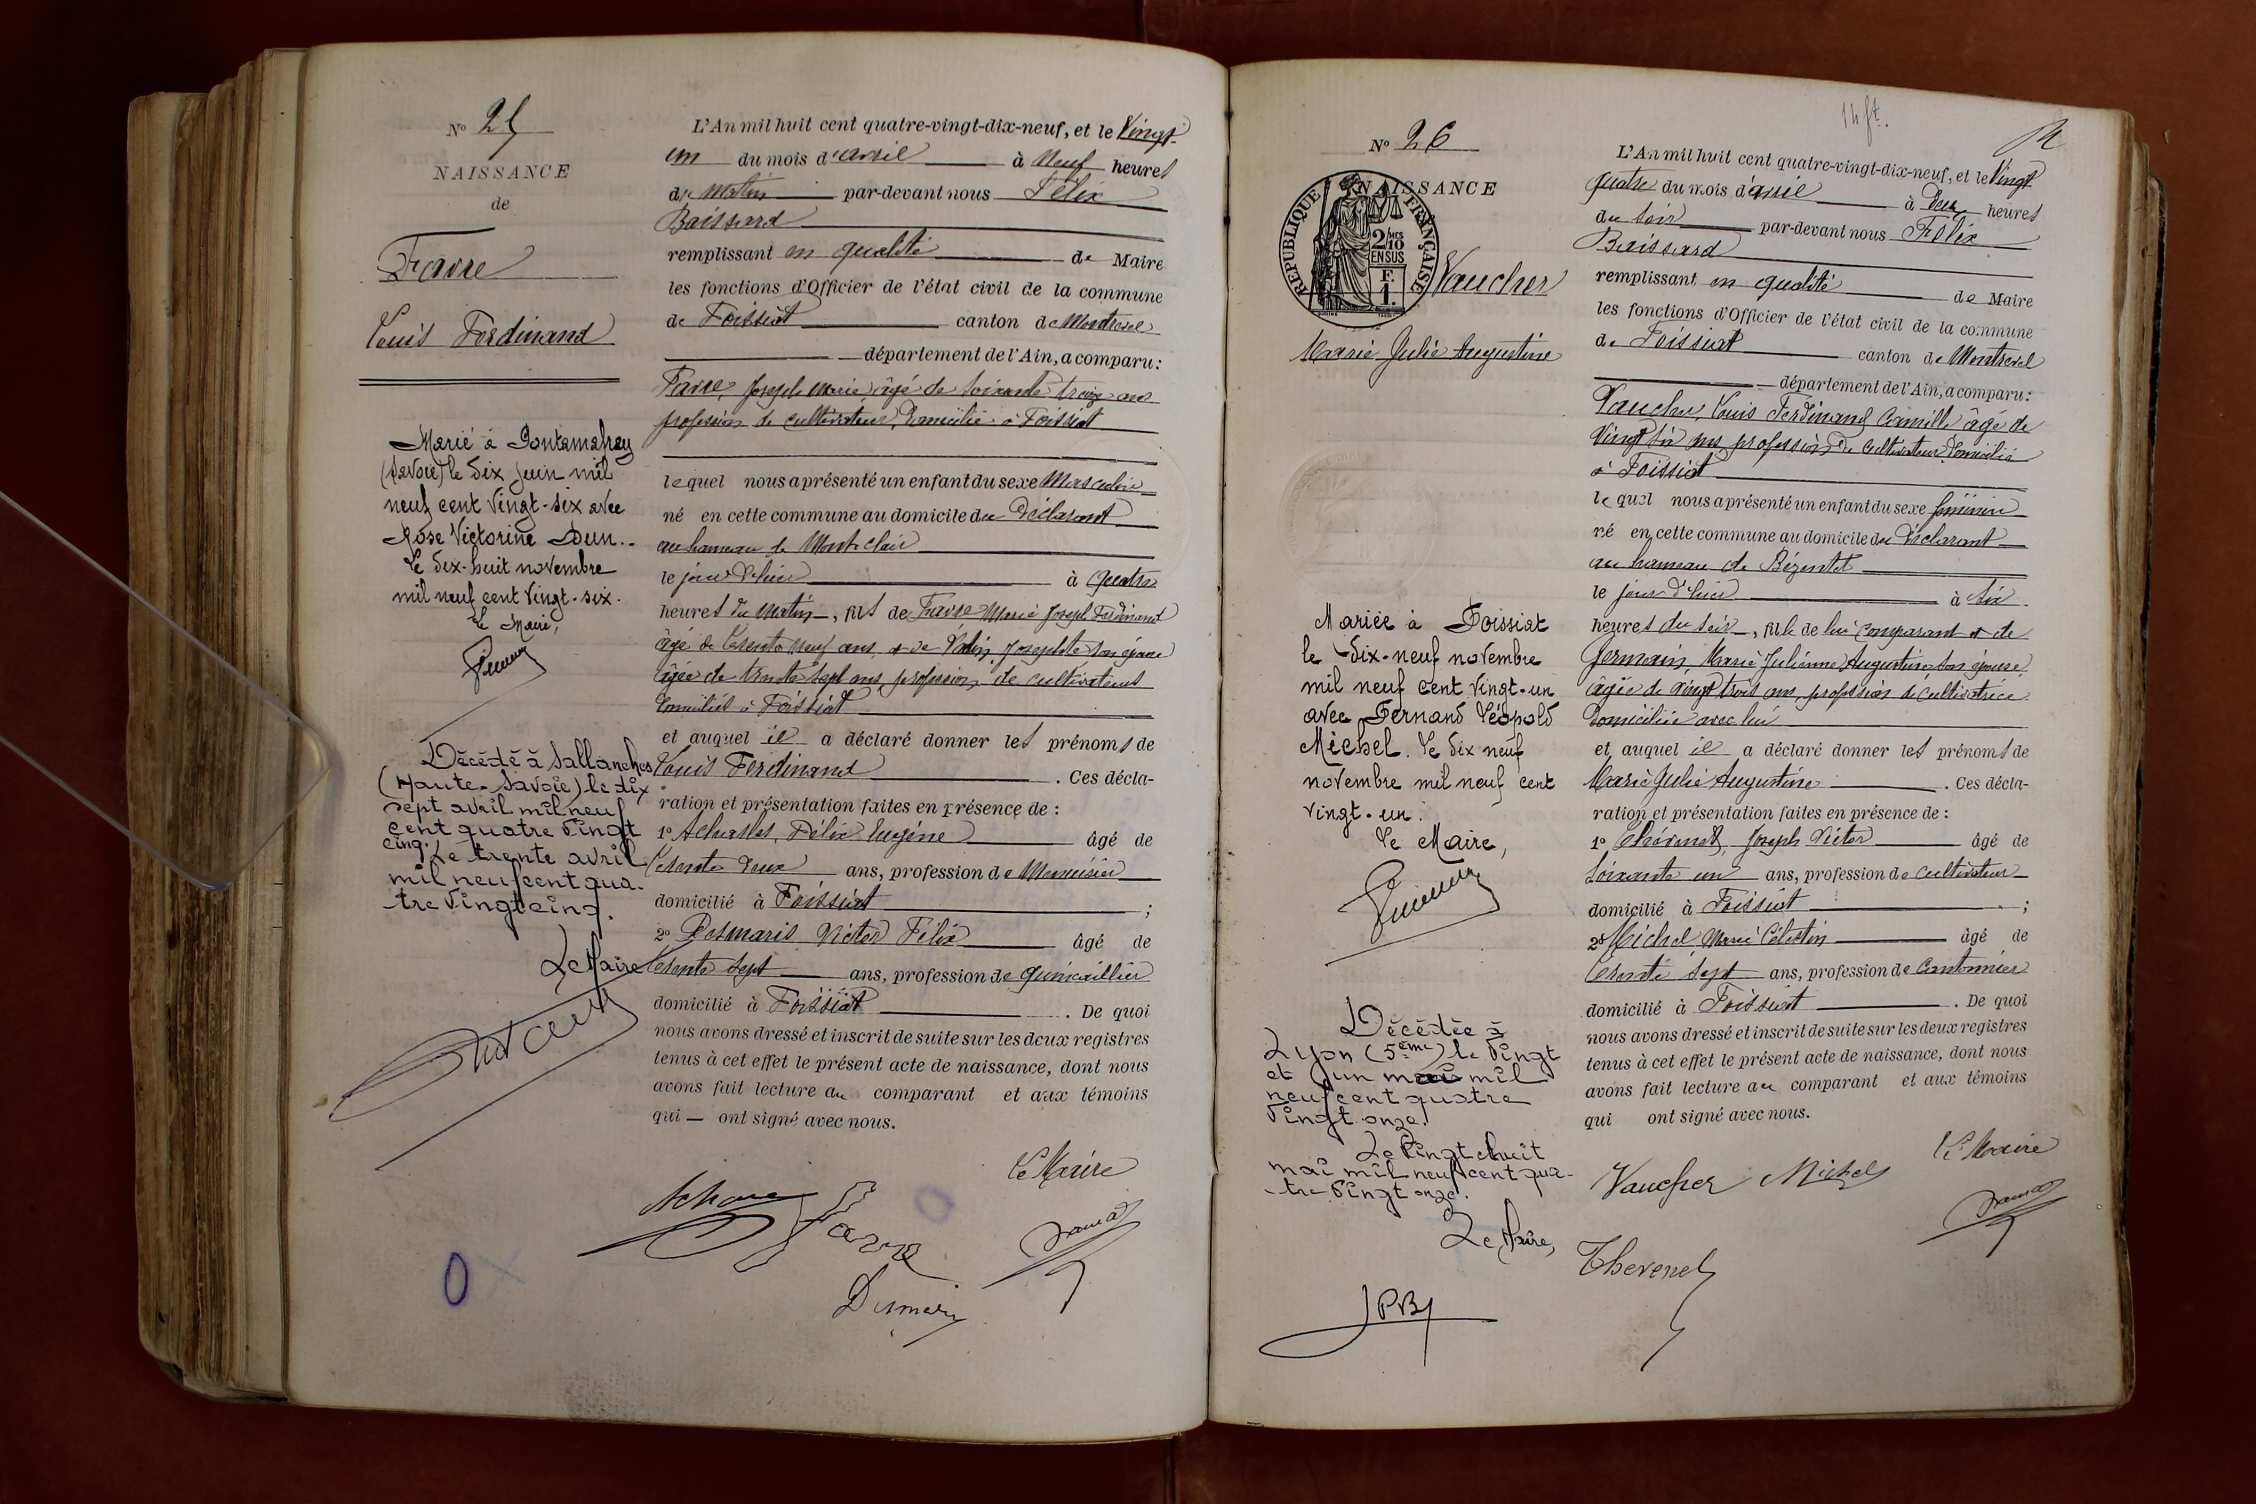 Nº 25
NAISSANCE
de
Favre
Louis Ferdinand
Marié à Pontamafrey
(Savoie) le dix juin mil
neuf cent vingt-six avec
Rose Victorine Dun.
Le dix-huit novembre
mil neuf cent vingt-six.
Le Maire,
Décédé à Sallanches
(Haute-Savoie) le dix
sept avril mil neuf
cent quatre vingt
cinq. Le trente avril
mil neuf cent qua-
tre vingt cinq.
Le Maire
L'An mil huit cent quatre-vingt-dix-neuf, et le Vingt
un du mois d'avril à Neuf heures
du Matin par-devant nous Félix
Baissard
remplissant en qualité de Maire
les fonctions d'Officier de l'état civil de la commune
de Foissiat canton de Montrevel
département de l'Ain, a comparu:
Favre, Joseph Marie âgé de soixante treize ans
profession de cultivateur, domicilié à Foissiat
lequel nous a présenté un enfant du sexe Masculin
né en cette commune au domicile du Déclarant
au hameau de Montclair
le jour d'hier à quatre
heures du matin, fils de Favre Marie Joseph Ferdinand
âgé de trente neuf ans, et de Josephte son épouse
âgée de trente sept ans, profession de cultivateurs
domiciliés à Foissiat
et auquel il a déclaré donner les prénoms de
Louis Ferdinand . Ces décla-
ration et présentation faites en présence de :
1º Acharles, Félix Eugène âgé de
trente deux ans, profession de Menuisier
domicilié à Foissiat ;
2º Desmaris Victor Félix âgé de
trente sept ans, profession de quincaillier
domicilié à Foissiat . De quoi
nous avons dressé et inscrit de suite sur les deux registres
tenus à cet effet le présent acte de naissance, dont nous
avons fait lecture au comparant et aux témoins
qui — ont signé avec nous.
Le Maire
Favre
Desmaris
14 ft.
Nº 26
NAISSANCE
RÉPUBLIQUE FRANÇAISE
2/10
EN SUS
F.
1.
Vaucher
Marie Julie Augustine
Mariée à Foissiat
le dix-neuf novembre
mil neuf cent vingt-un
avec Fernand Léopold
Michel. Le dix neuf
novembre mil neuf cent
vingt-un.
Le Maire,
Décédée à
Lyon (5ème) le vingt
et un mai mil
neuf cent quatre
vingt onze.
Le vingt huit
mai mil neuf cent qua-
tre vingt onze.
Le Maire,
L'An mil huit cent quatre-vingt-dix-neuf, et le Vingt
quatre du mois d'avril à Deux heures
du soir par-devant nous Félix
Baissard
remplissant en qualité de Maire
les fonctions d'Officier de l'état civil de la commune
de Foissiat canton de Montrevel
département de l'Ain, a comparu:
Vaucher, Louis Ferdinand Camille âgé de
vingt six ans profession de cultivateur domicilié
à Foissiat
lequel nous a présenté un enfant du sexe féminin
né en cette commune au domicile du Déclarant
au hameau de Bézentet
le jour d'hier à six
heures du soir, fille de lui comparant et de
Germain Marie Julienne Augustine son épouse
âgée de vingt trois ans, profession de cultivatrice
domiciliée avec lui
et auquel il a déclaré donner les prénoms de
Marie Julie Augustine . Ces décla-
ration et présentation faites en présence de :
1º Thévenet, Joseph Victor âgé de
soixante un ans, profession de cultivateur
domicilié à Foissiat ;
2º Michel Marie Célestin âgé de
trente sept ans, profession de cantonnier
domicilié à Foissiat . De quoi
nous avons dressé et inscrit de suite sur les deux registres
tenus à cet effet le présent acte de naissance, dont nous
avons fait lecture au comparant et aux témoins
qui ont signé avec nous.
Le Maire
Vaucher Michel
Thevenet